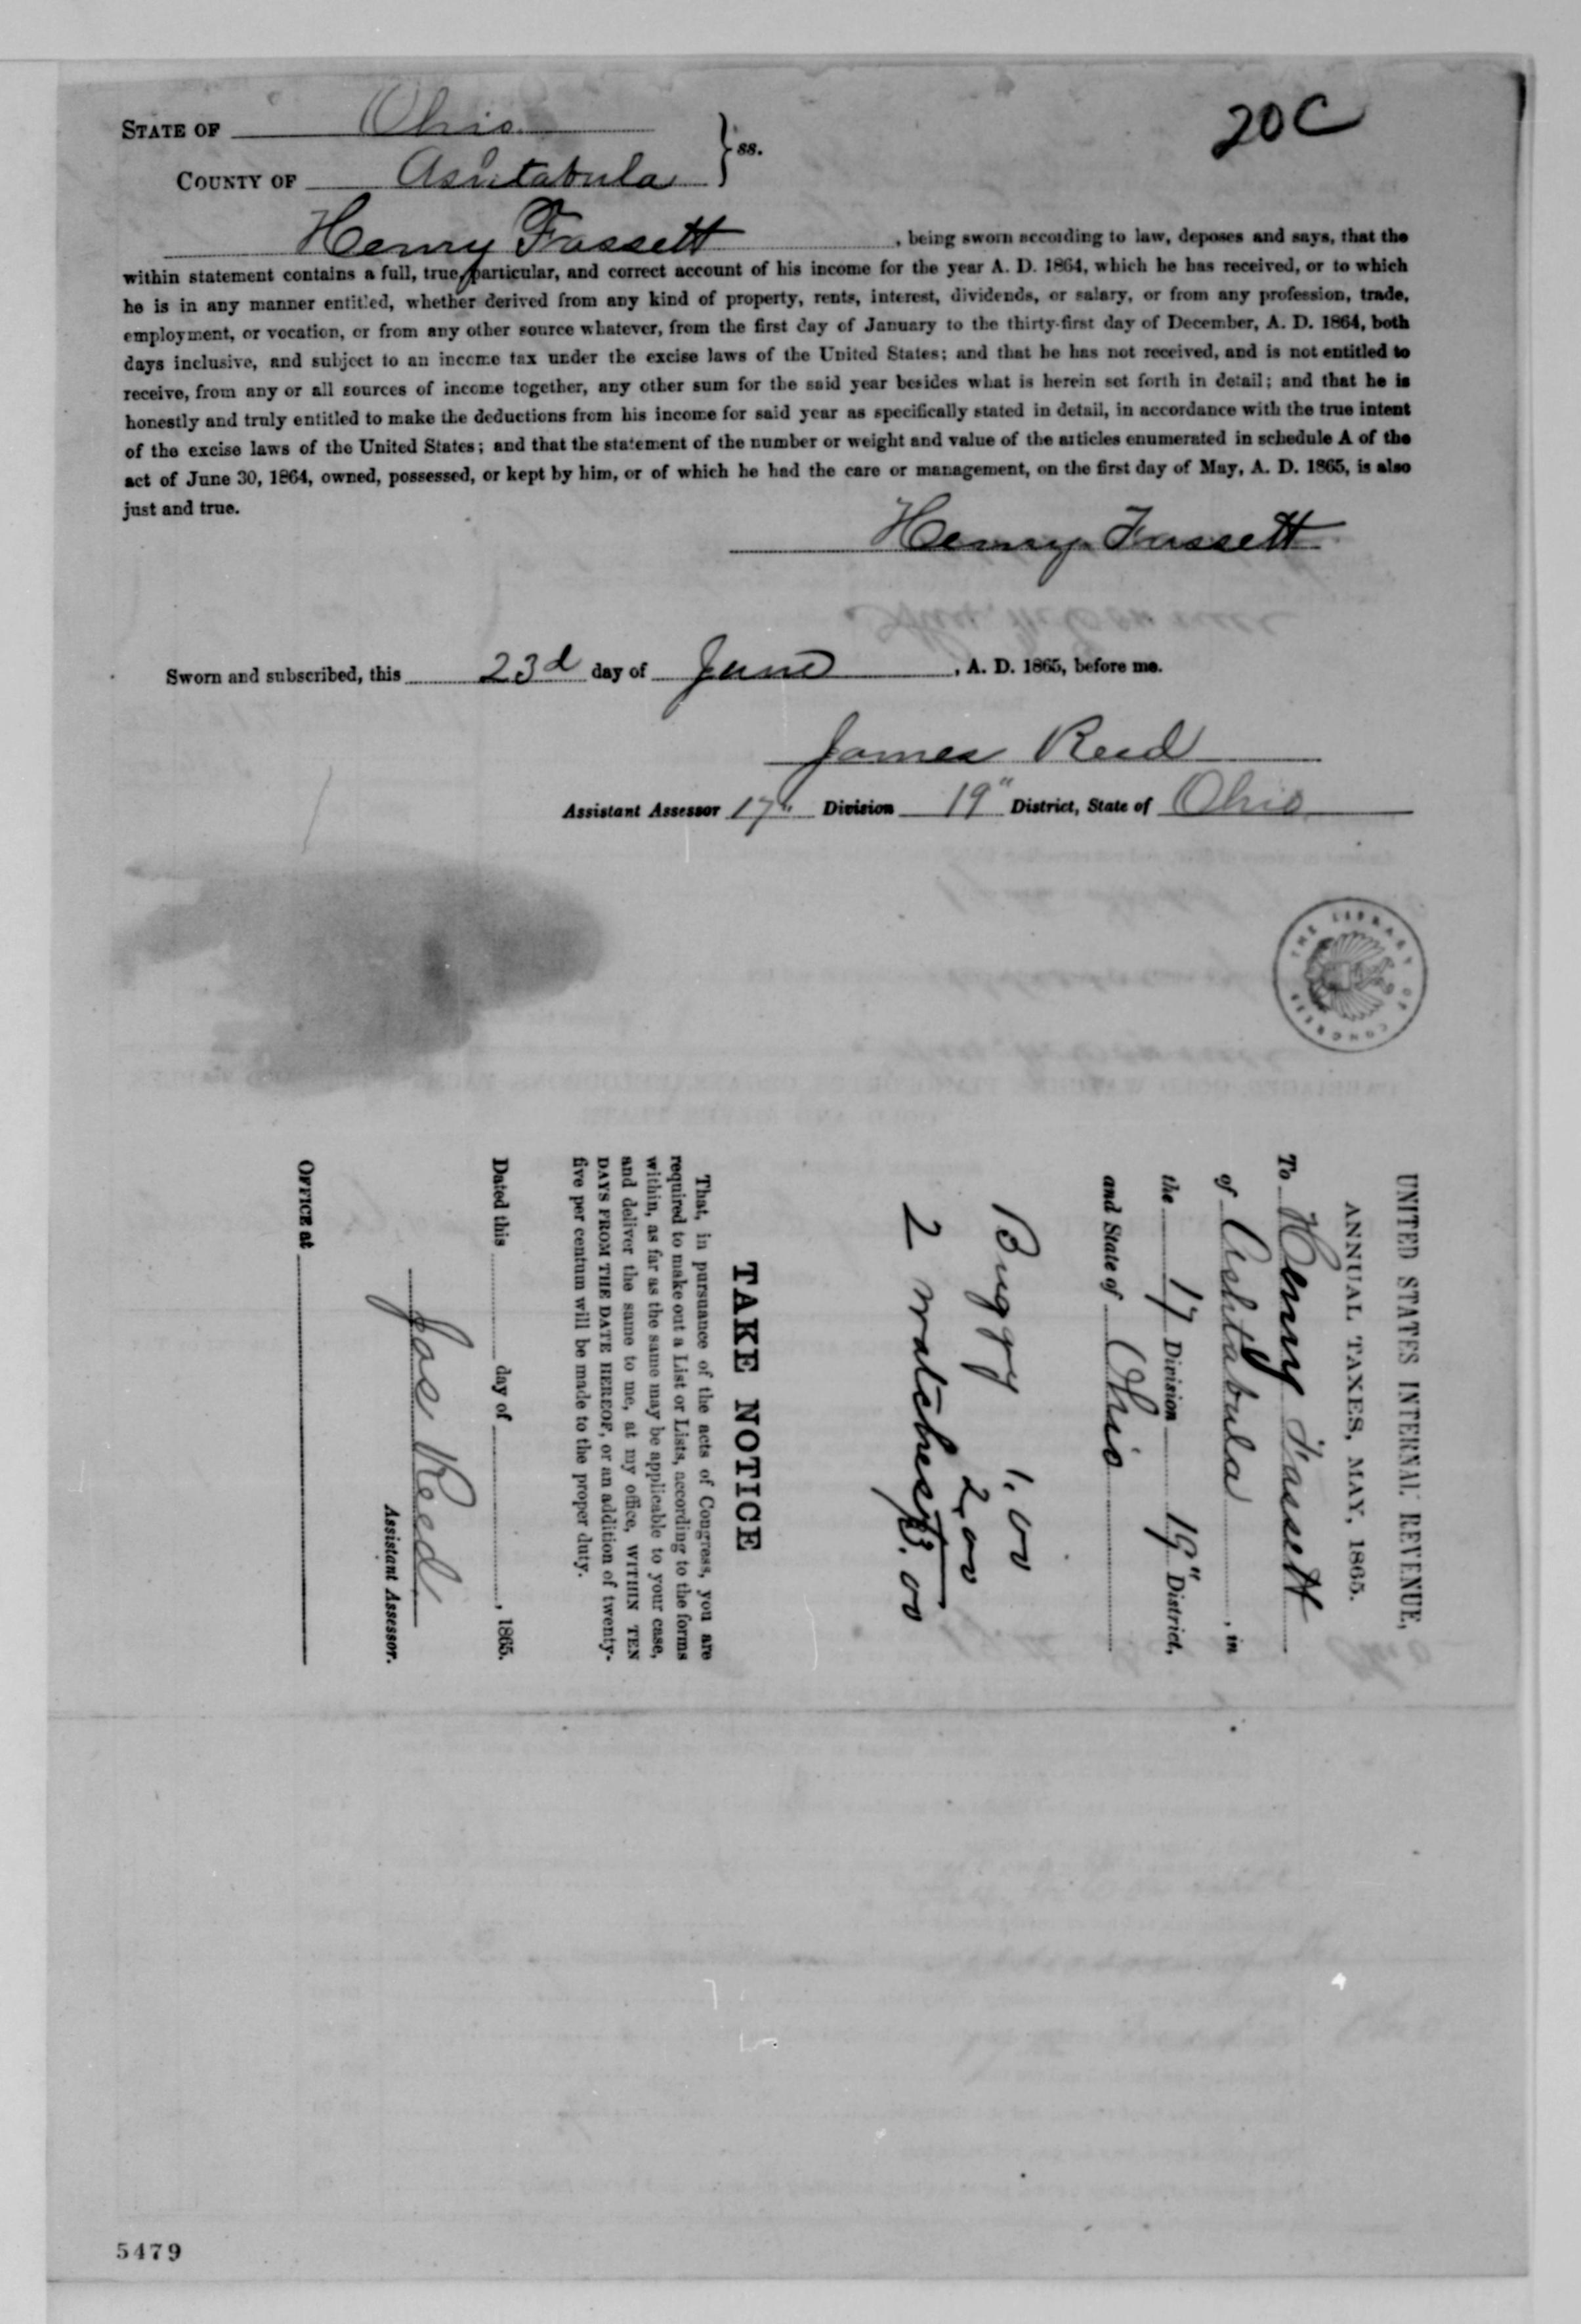 20C
STATE OF Ohio
COUNTY OF Ashtabula } ss.
Henry Fassett, being sworn according to law, deposes and says, that the
within statement contains a full, true, particular, and correct account of his income for the year A. D. 1864, which he has received, or to which
he is in any manner entitled, whether derived from any kind of property, rents, interest, dividends, or salary, or from any profession, trade,
employment, or vocation, or from any other source whatever, from the first day of January to the thirty-first day of December, A. D. 1864, both
days inclusive, and subject to an income tax under the excise laws of the United States; and that he has not received, and is not entitled to
receive, from any or all sources of income together, any other sum for the said year besides what is herein set forth in detail; and that he is
honestly and truly entitled to make the deductions from his income for said year as specifically stated in detail, in accordance with the true intent
of the excise laws of the United States; and that the statement of the number or weight and value of the articles enumerated in schedule A of the
act of June 30, 1864, owned, possessed, or kept by him, or of which he had the care or management, on the first day of May, A. D. 1865, is also
just and true.
Henry Fassett
Sworn and subscribed, this 23d day of June, A. D. 1865, before me.
James Reed
Assistant Assessor 17" Division 19" District, State of Ohio
THE LIBRARY OF CONGRESS
UNITED STATES INTERNAL REVENUE,
ANNUAL TAXES, MAY, 1865.
To Henry Fassett
of Ashtabula, in
the 17 Division 19" District,
and State of Ohio
Buggy 1.00
2.00
2 watches 3.00
TAKE NOTICE
That, in pursuance of the acts of Congress, you are
required to make out a List or Lists, according to the forms
within, as far as the same may be applicable to your case,
and deliver the same to me, at my office, WITHIN TEN
DAYS FROM THE DATE HEREOF, or an addition of twenty-
five per centum will be made to the proper duty.
Dated this day of , 1865.
Jas Reed
Assistant Assessor.
OFFICE at
5479